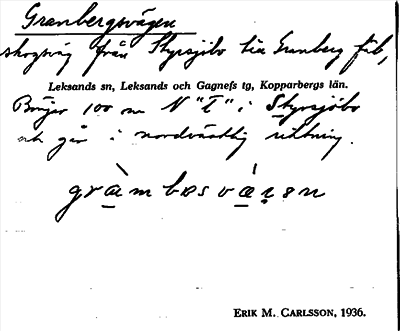 Granbergsvägen
skogsväg från Styrsjöbo till Granberg fäb,
Leksands sn, Leksands och Gagnefs tg, Kopparbergs län.
Börjar 100 m N "T" i Styrsjöbo
och går i nordvästlig riktning.
gràmbəsvä̀gən
ERIK M. CARLSSON, 1936.